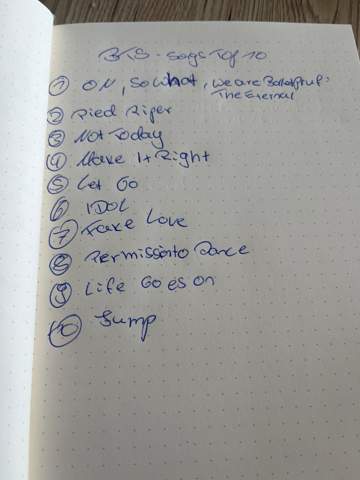 BTS - Songs Top 10
① ON, So What, We are Bulletproof:
The Eternal
② Pied Piper
③ Not Today
④ Make It Right
⑤ Let Go
⑥ IDOL
⑦ Fake Love
⑧ Permission to Dance
⑨ Life Goes On
⑩ Jump